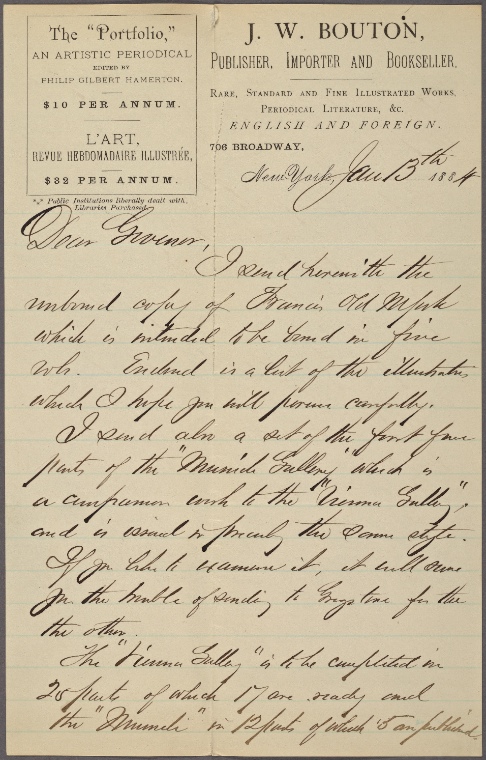 The "Portfolio,"
AN ARTISTIC PERIODICAL
EDITED BY
PHILIP GILBERT HAMERTON.
$10 PER ANNUM.
L'ART,
REVUE HEBDOMADAIRE ILLUSTRÉE,
$32 PER ANNUM.
*** Public Institutions liberally dealt with.
Libraries Purchased.
J. W. BOUTON,
PUBLISHER, IMPORTER AND BOOKSELLER,
RARE, STANDARD AND FINE ILLUSTRATED WORKS,
PERIODICAL LITERATURE, &C.
ENGLISH AND FOREIGN.
706 BROADWAY,
New York, Jan 13th 1884
Dear Governor,
I send herewith the
unbound copy of Francis Old New York
which is intended to be bound in five
vols. Enclosed is a list of the illustrations
which I hope you will peruse carefully.
I send also a set of the first five
parts of the "Munich Gallery" which is
a companion work to the "Vienna Gallery",
and is issued in precisely the same style.
If you like to examine it, it will save
you the trouble of sending to Greystone for the
the other.
The "Vienna Gallery" is to be completed in
28 parts of which 17 are ready and
the "Munich" in 12 parts of which 5 are published.